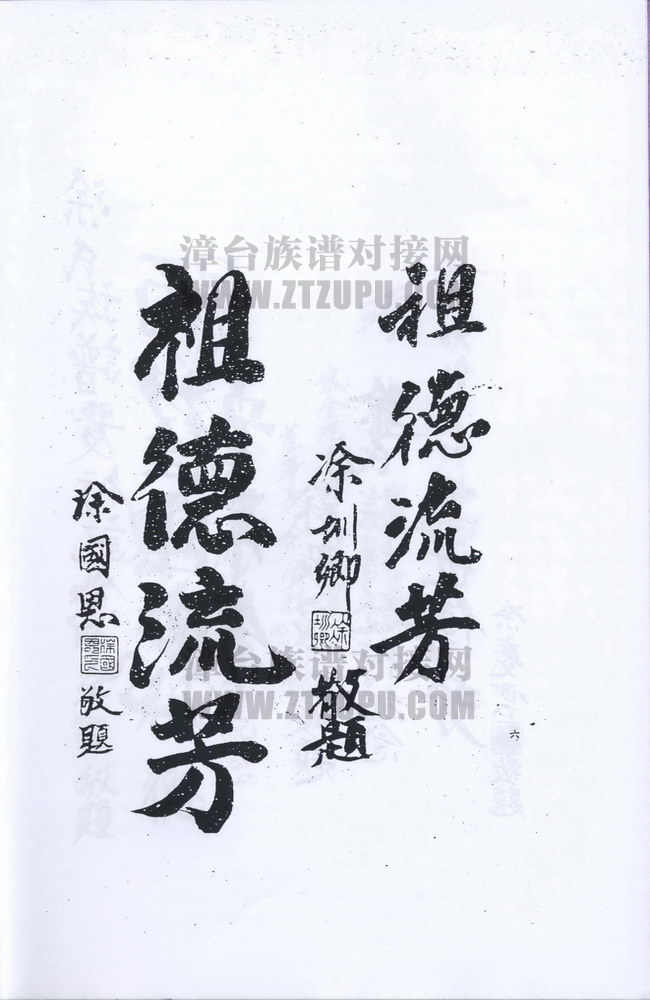 漳台族谱对接网
WWW.ZTZUPU.COM
祖德流芳
涂圳卿
敬題
祖德流芳
涂國恩
敬題
六
漳台族谱对接网
WWW.ZTZUPU.COM